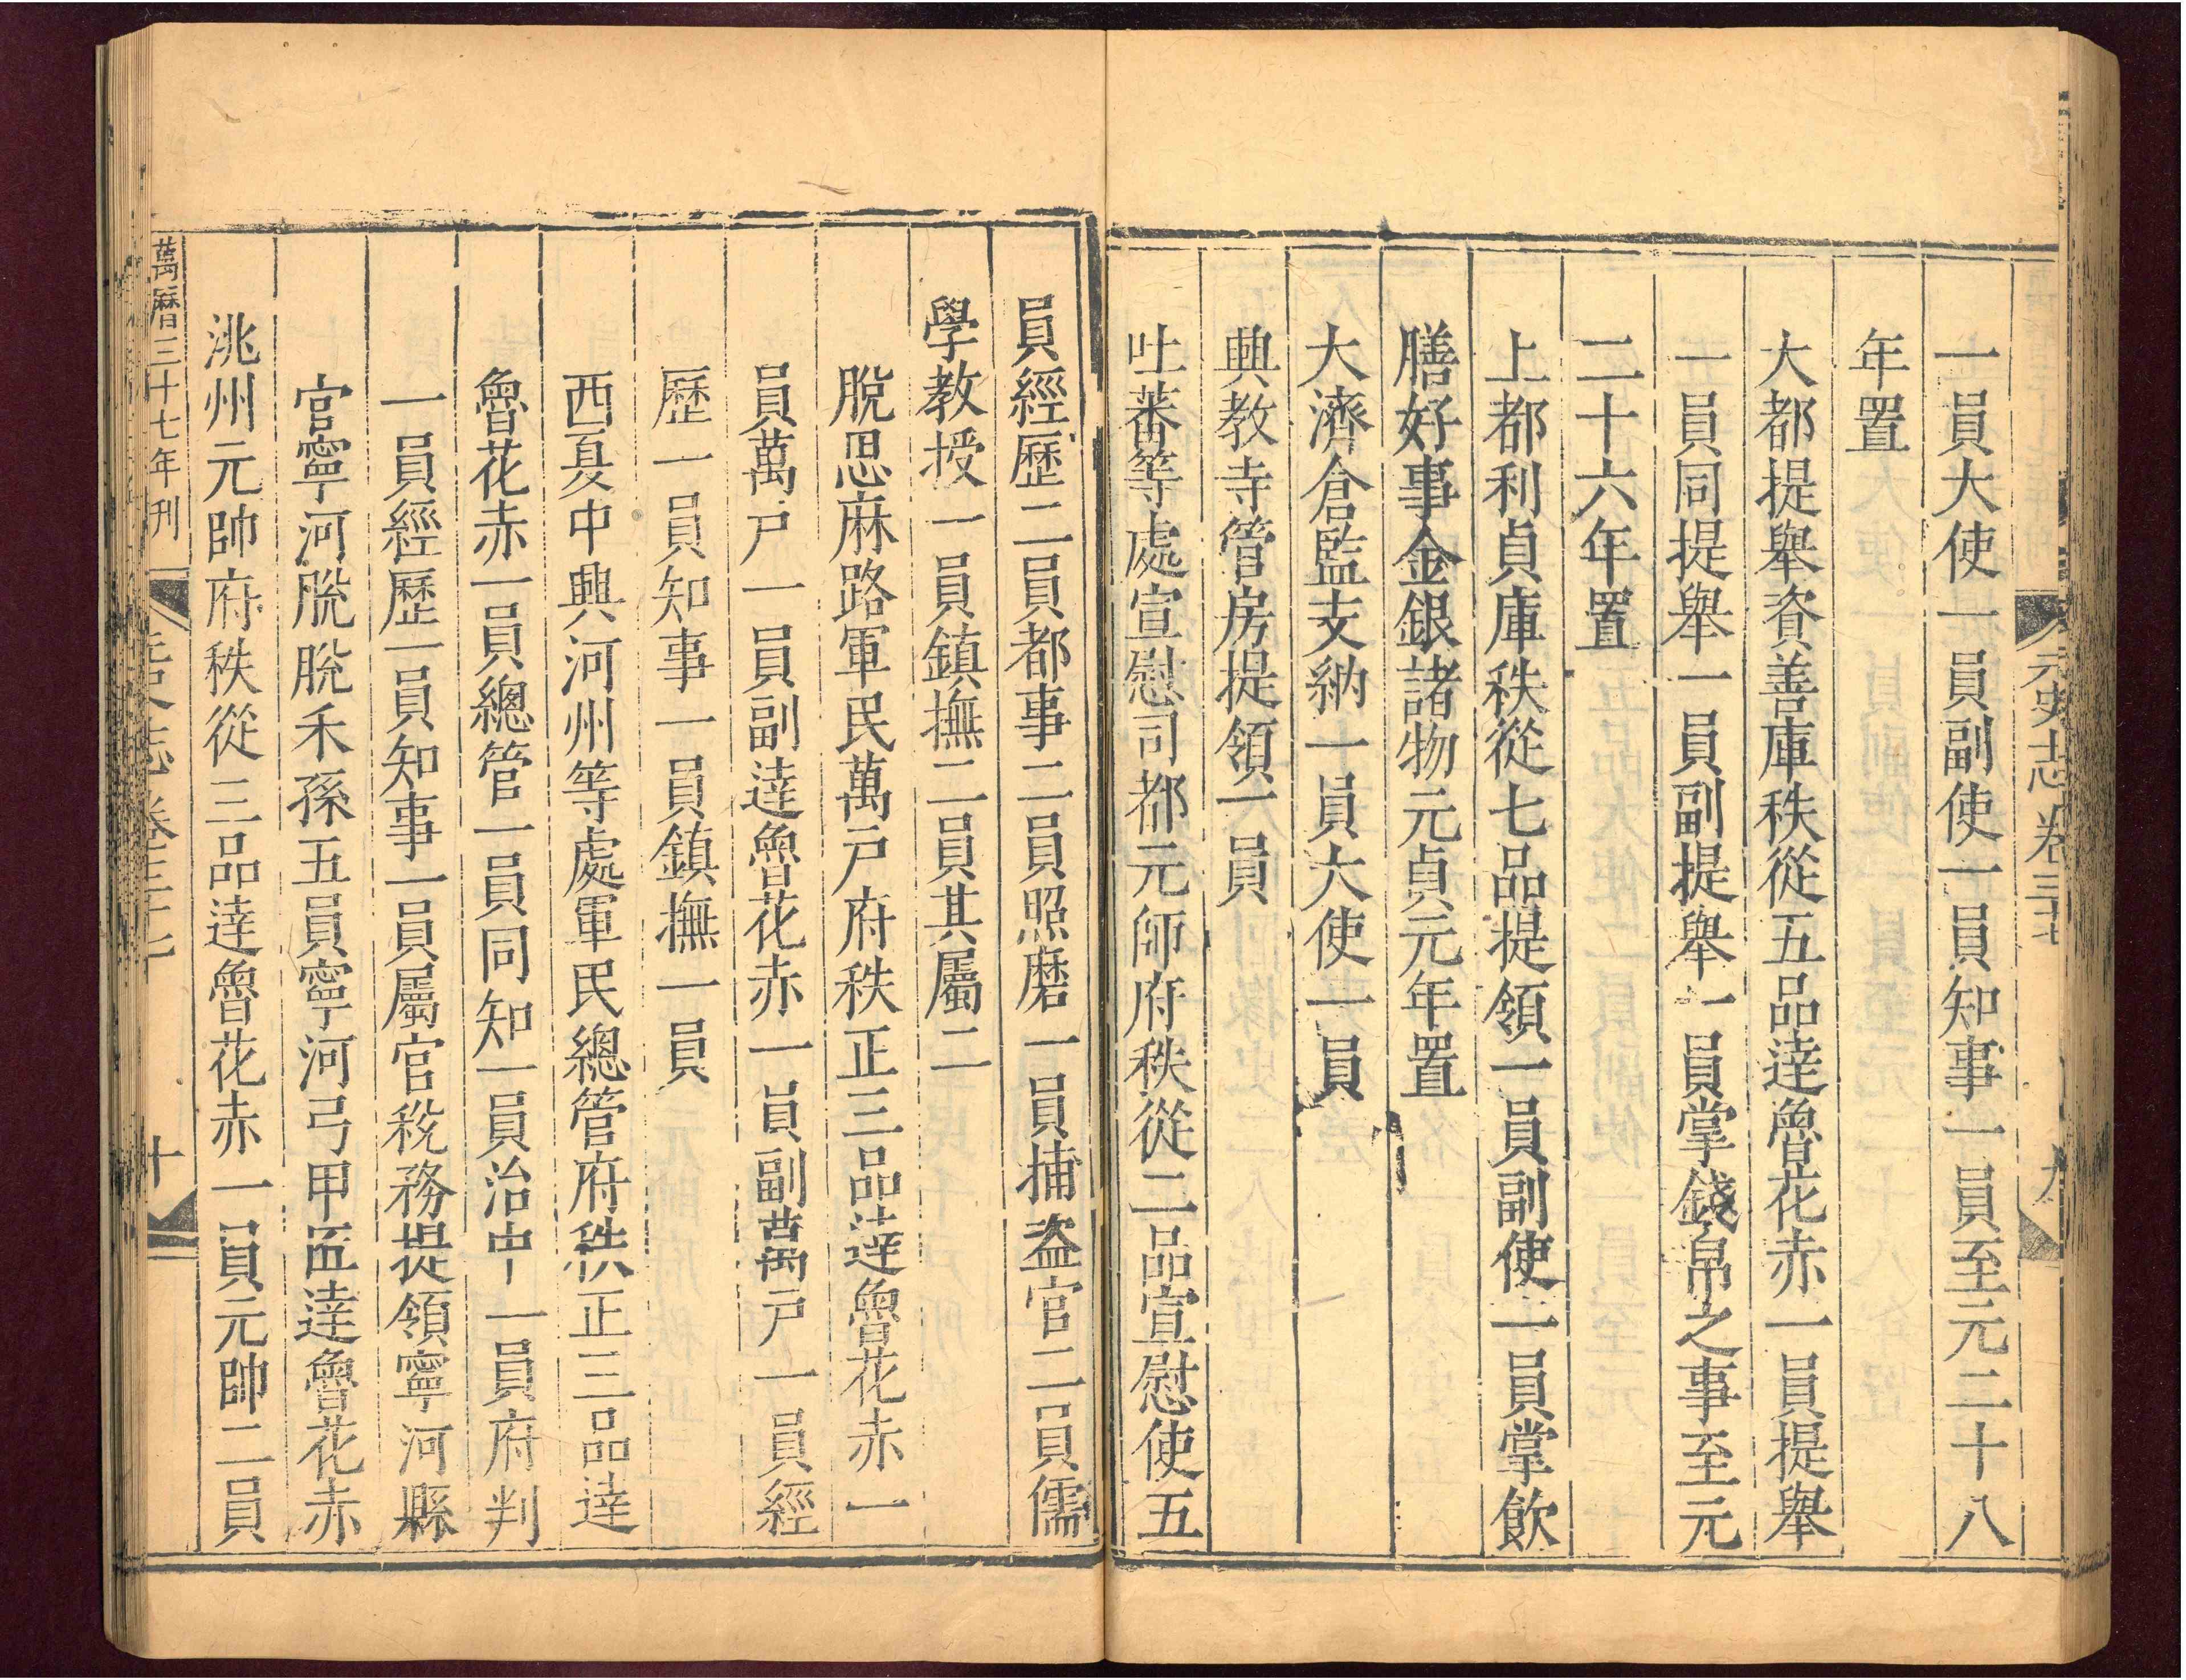 元史志卷三十七 九
一員大使一員副使一員知事一員至元二十八
年置
大都提舉資善庫秩從五品達魯花赤一員提舉
一員同提舉一員副提舉一員掌錢帛之事至元
二十六年置
上都利貞庫秩從七品提領一員副使一員掌飲
膳好事金銀諸物元貞元年置
大濟倉監支納一員大使一員
興教寺管房提領一員
吐蕃等處宣慰司都元帥府秩從二品宣慰使五
員經歷二員都事二員照磨一員捕盗官二員儒
學教授一員鎮撫二員其屬二
脫思麻路軍民萬戸府秩正三品達魯花赤一
員萬戸一員副達魯花赤一員副萬戸一員經
歷一員知事一員鎮撫一員
西夏中興河州等處軍民總管府秩正三品達
魯花赤一員總管一員同知一員治中一員府判
一員經歷一員知事一員屬官稅務提領寧河縣
官寧河脫脫禾孫五員寧河弓甲匠達魯花赤
洮州元帥府秩從三品達魯花赤一員元帥二員
萬曆三十七年刊 元史志卷三十七 十